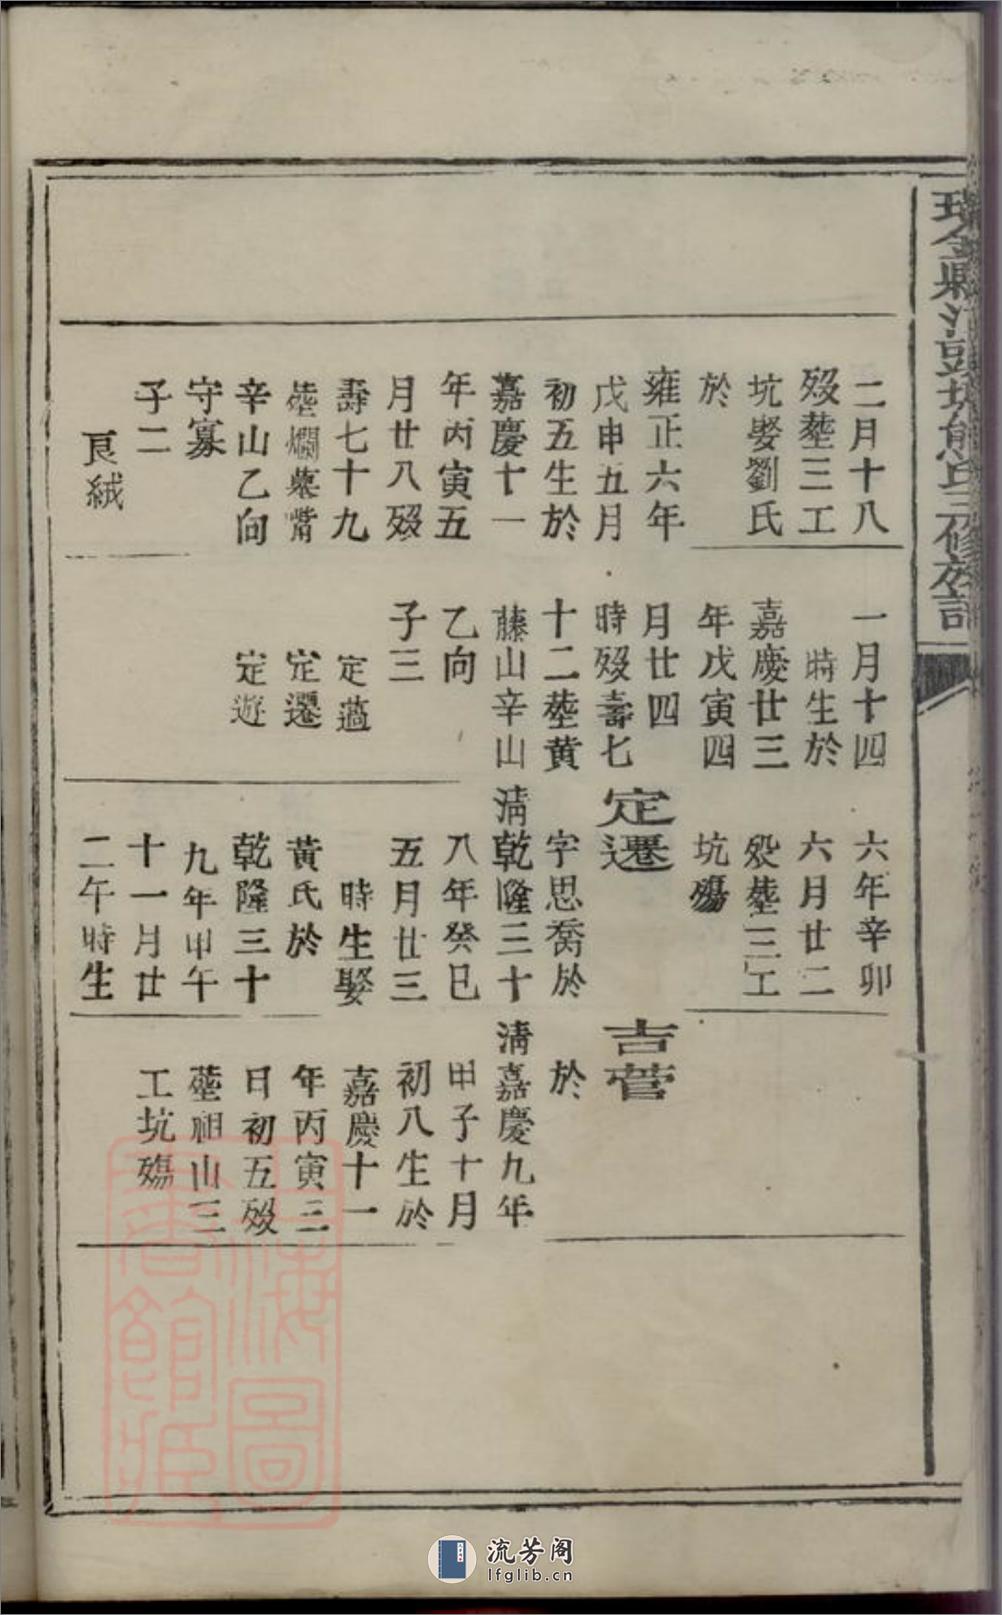 瑞金縣沙頭坊熊氏三修族譜
二月十八
歿塟三工
坑娶劉氏
於
雍正六年
戊申五月
初五生於
嘉慶十一
年丙寅五
月廿八歿
壽七十九
塟爛藔背
辛山乙向
守寡
子二
良絨
一月十四
時生於
嘉慶廿三
年戊寅四
月廿四
時歿壽七
十二塟黄
藤山辛山
乙向
子三
定䓕
定遷
定遊
六年辛卯
六月廿二
歿塟三工
坑殤
定遷
字思喬於
清乾隆三十
八年癸巳
五月廿三
時生娶
黃氏於
乾隆三十
九年甲午
十一月廿
二午時生
吉菅
於
清嘉慶九年
甲子十月
初八生於
嘉慶十一
年丙寅三
日初五歿
塟祖山三
工坑殤
上海圖
書館藏
流芳阁
lfglib.cn